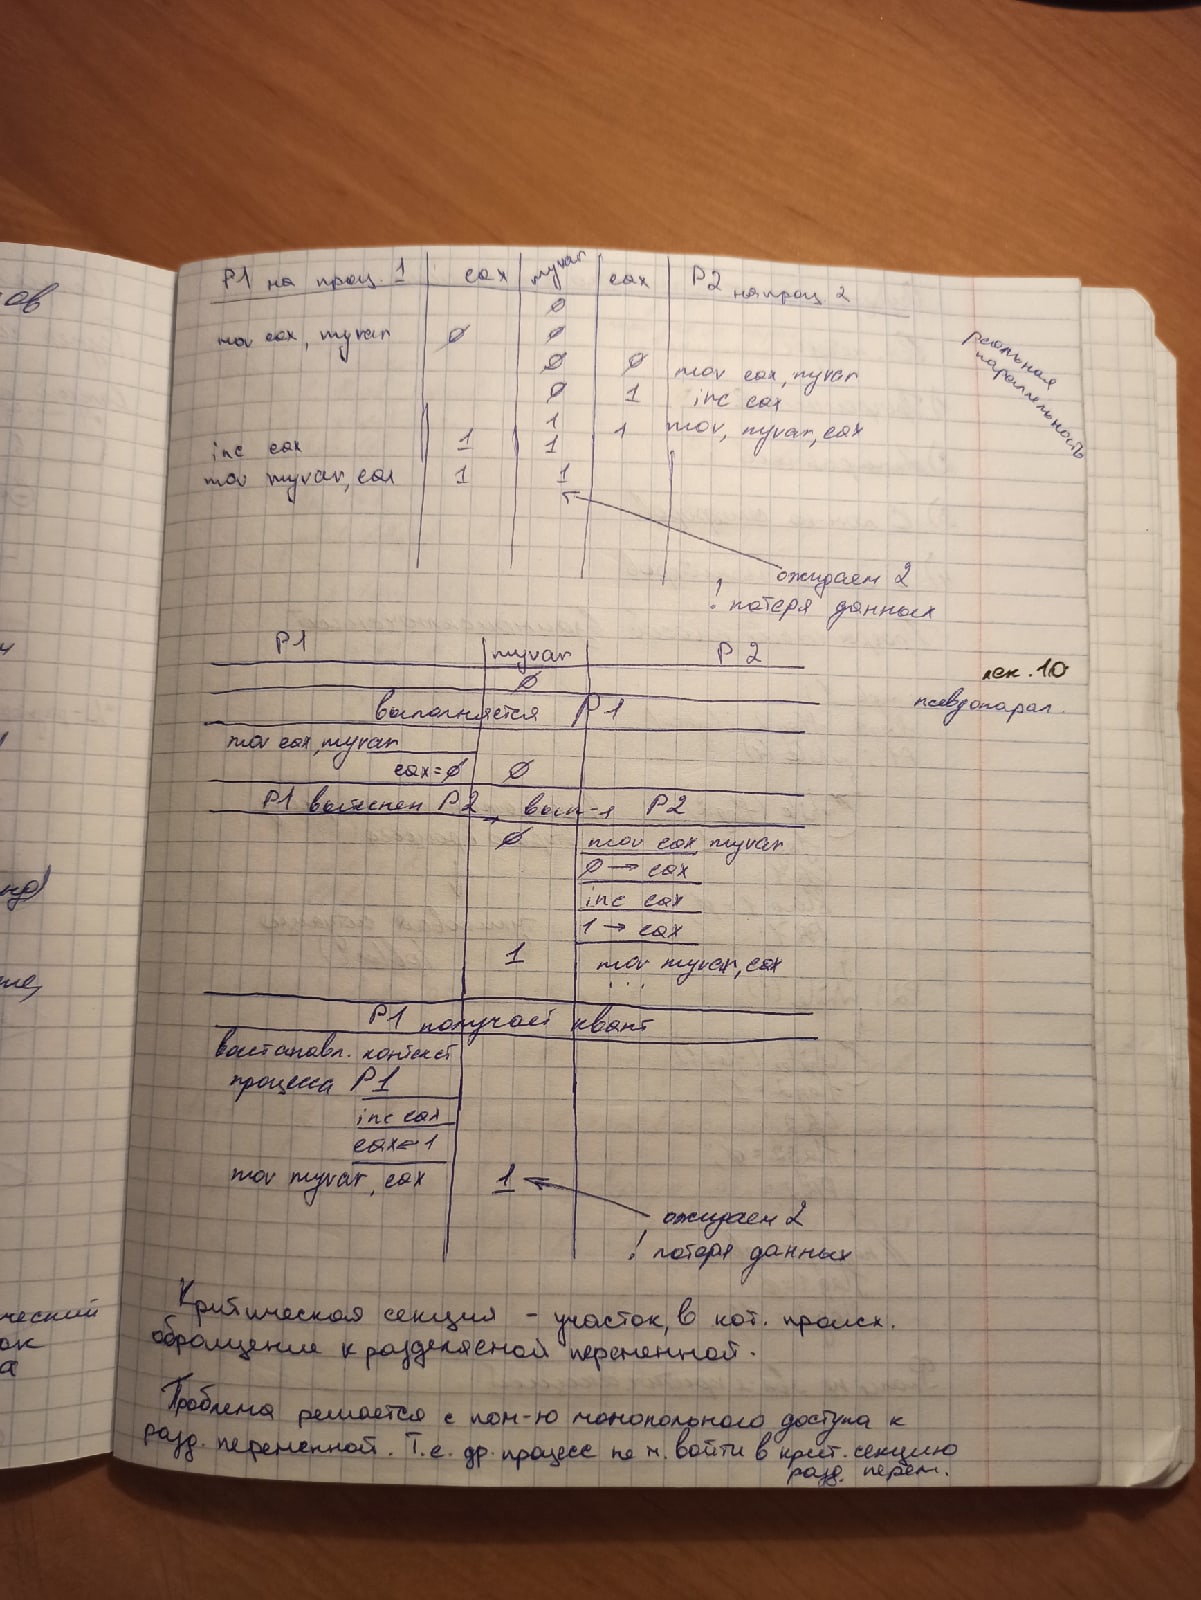 P1 на проц. 1 | eax | myvar | eax | P2 на проц 2
∅
mov eax, myvar ∅ ∅
∅ ∅ mov eax, myvar
∅ 1 inc eax
1 1 mov, myvar, eax
inc eax 1 1
mov myvar, eax 1 1
реальная
параллельность
ожидаем 2
! потеря данных
P1 myvar P2
∅
лек. 10
псевдопарал.
выполняется P1
mov eax, myvar
eax=∅ ∅
P1 вытеснен P2, вып-я P2
∅ mov eax myvar
∅ → eax
inc eax
1 → eax
1 mov myvar, eax
...
P1 получает квант
восстановл. контекст
процесса P1
inc eax
eax=1
mov myvar, eax 1
ожидаем 2
! потеря данных
Критическая секция - участок, в кот. происх.
обращение к разделяемой переменной.
Проблема решается с пом-ю монопольного доступа к
разд. переменной. Т.е. др. процесс не м. войти в крит. секцию
разд. перем.
ов
ческий
ок
а